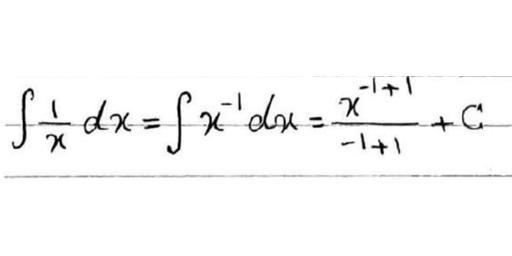 ∫ 1/x dx = ∫ x⁻¹ dx = x⁻¹⁺¹/−1+1 + C